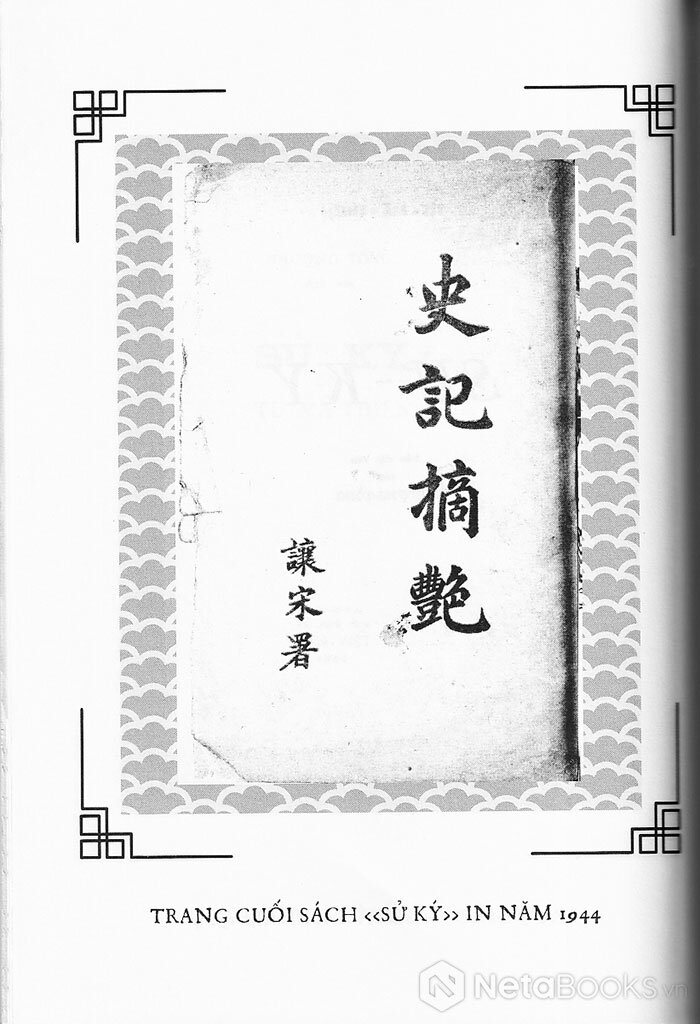 史記摘艷
讓宋署
TRANG CUỐI SÁCH <<SỬ KÝ>> IN NĂM 1944
NetaBooks.vn